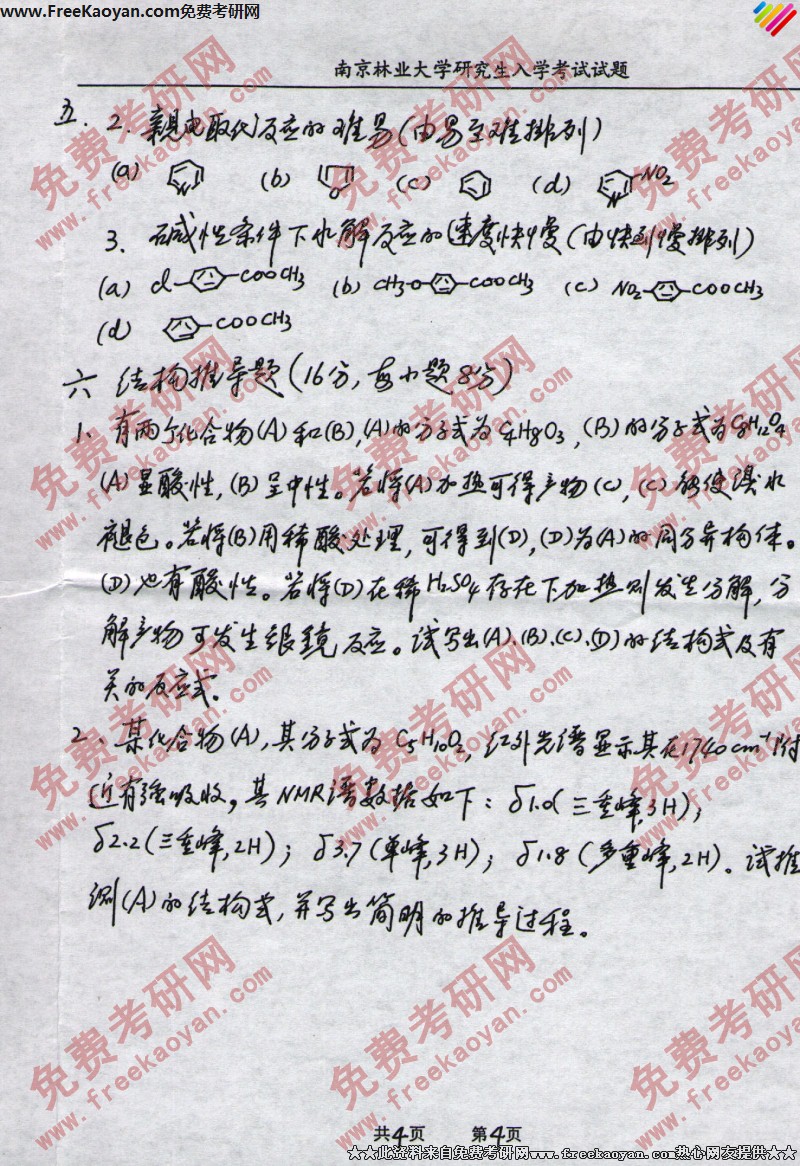 www.FreeKaoyan.com免费考研网
南京林业大学研究生入学考试试题
五. 2. 亲电取代反应的难易(由易至难排列)
(a) N (b) O (c) (d) N NO2
3. 碱性条件下水解反应的速度快慢(由快到慢排列)
(a) Cl COOCH3 (b) CH3O COOCH3 (c) NO2 COOCH3
(d) COOCH3
六 结构推导题(16分,每小题8分)
1. 有两个化合物(A)和(B),(A)的分子式为C4H8O3,(B)的分子式为C8H12O4
(A)显酸性,(B)呈中性。若将(A)加热可得产物(C),(C)能使溴水
褪色。若将(B)用稀酸处理,可得到(D),(D)为(A)的同分异构体。
(D)也有酸性。若将(D)在稀H2SO4存在下加热则发生分解,分
解产物可发生银镜反应。试写出(A).(B).(C).(D)的结构式及有
关的反应式.
2. 某化合物(A),其分子式为C5H10O2,红外光谱显示其在1740cm-1附
近有强吸收。其NMR谱数据如下:δ1.0(三重峰,3H);
δ2.2(三重峰,2H);δ3.7(单峰,3H);δ1.8(多重峰,2H)。试推
测(A)的结构式,并写出简明的推导过程。
共4页 第4页
★★此资料来自免费考研网www.freekaoyan.com热心网友提供★★
免费考研网
www.freekaoyan.com